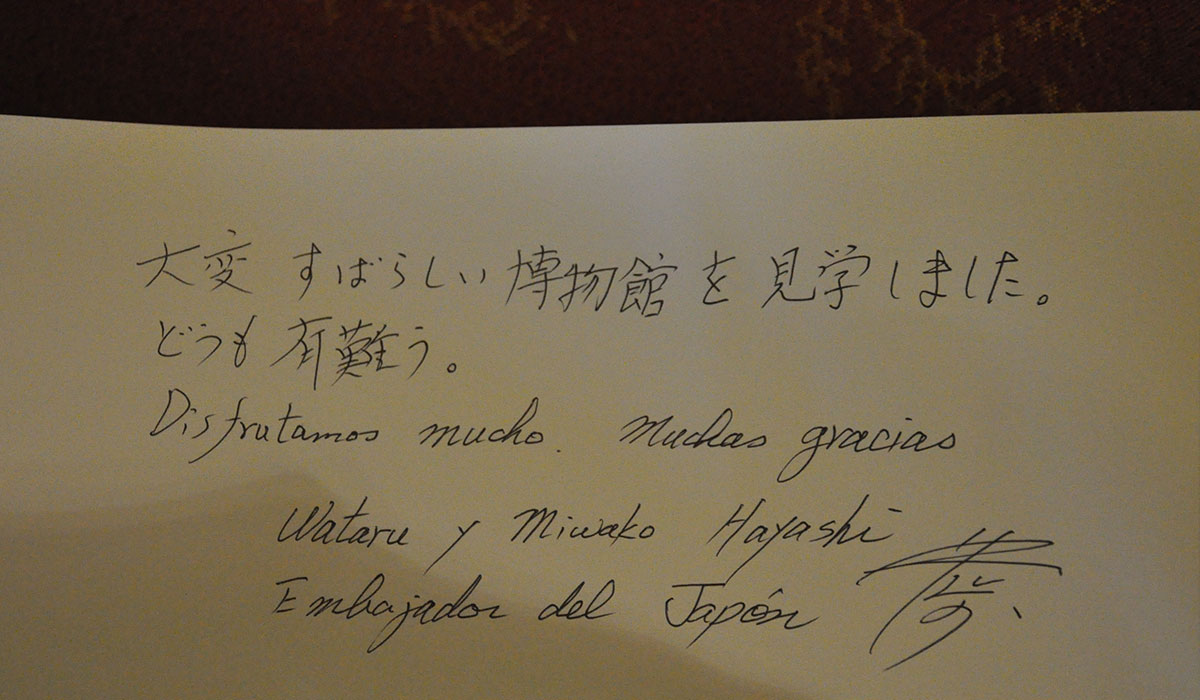 大変 すばらしい 博物館 を 見学しました。
どうも 有難う。
Disfrutamos mucho. Muchas gracias
Wataru y Miwako Hayashi
Embajador del Japón